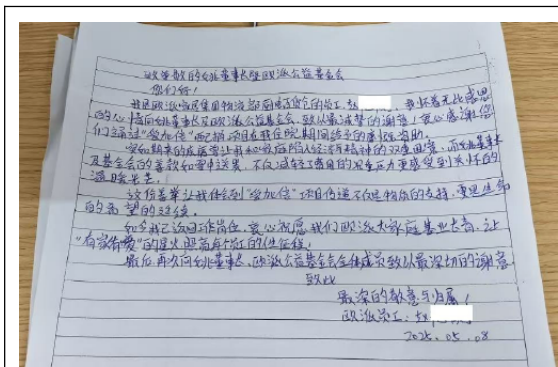 致尊敬的姚董事长暨欧派公益基金会
你们好！
我是欧派家居集团物流部
的员工，赵
，我怀着无比感恩
的心情向姚董事长及欧派公益基金会，致以最诚挚的谢意！衷心感谢您
们通过“爱加倍”
项目在我住院期间给予的
资助。
突如其来的疾病曾让我和家庭陷入经济与精神的双重困境，而姚董事长
及基金会的善款如雪中送炭，不仅减轻了费用的
压力更感受到关怀的
温暖光芒。
这份善举让我体会到“爱加倍”项目传递不仅是物质的支持，更是生命
的希望的延续。
如今我已返回工作岗位，衷心祝愿我们欧派大家庭基业长青，让
“有家有爱”的星火照亮每个员工的
最后，再次向姚董事长，欧派公益基金会全体成员致以最深切的谢意
致此
最深的敬意与归属！
欧派员工：赵
2025.05.08